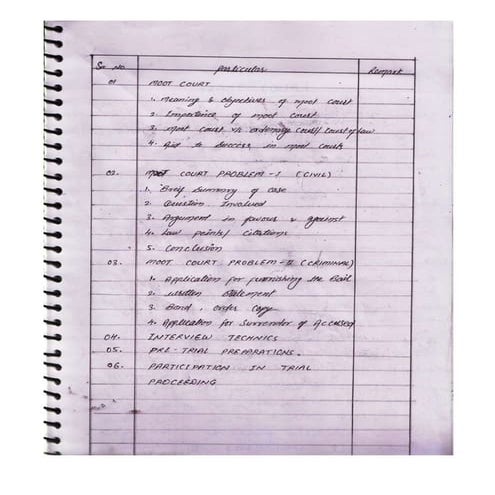 Sr No. Particular Remark
01 MOOT COURT
1. Meaning & objectives of moot court
2. Importance of moot court
3. Moot court v/s ordinary court/ court of law
4. Aid to success in moot court
02. MOOT COURT PROBLEM-I (CIVIL)
1. Brief Summary of case
2. Question Involved
3. Argument in favour & against
4. Law points/ citations
5. Conclusion
03. MOOT COURT PROBLEM-II (CRIMINAL)
1. Application for furnishing the Bail
2. written statement
3. Bond, order copy
4. Application for Surrender of Accused
04. INTERVIEW TECHNICS
05. PRE-TRIAL PREPARATIONS.
06. PARTICIPATION IN TRIAL
PROCEEDING